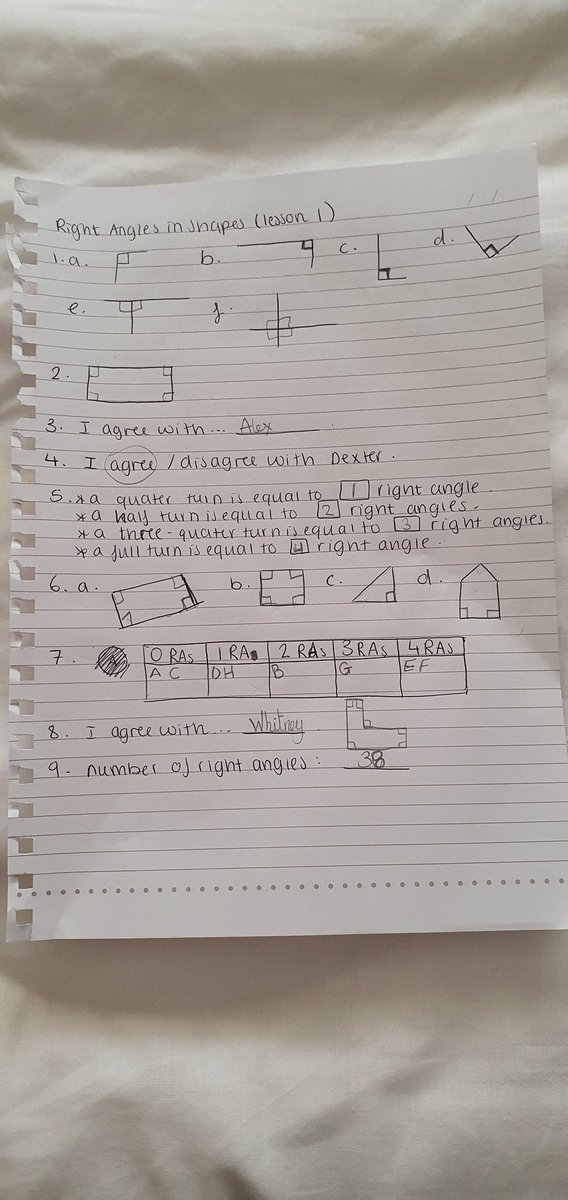 Right Angles in shapes (lesson 1)
1. a. b. c. d.
e. f.
2.
3. I agree with... Alex.
4. I agree / disagree with Dexter.
5. * a quater turn is equal to 1 right angle.
* a half turn is equal to 2 right angles.
* a three-quater turn is equal to 3 right angles.
* a full turn is equal to 4 right angle.
6. a. b. c. d.
7. 0 RAs 1 RA 2 RAs 3 RAs 4 RAs
A C DH B G EF
8. I agree with... Whitney.
9. number of right angles: 38